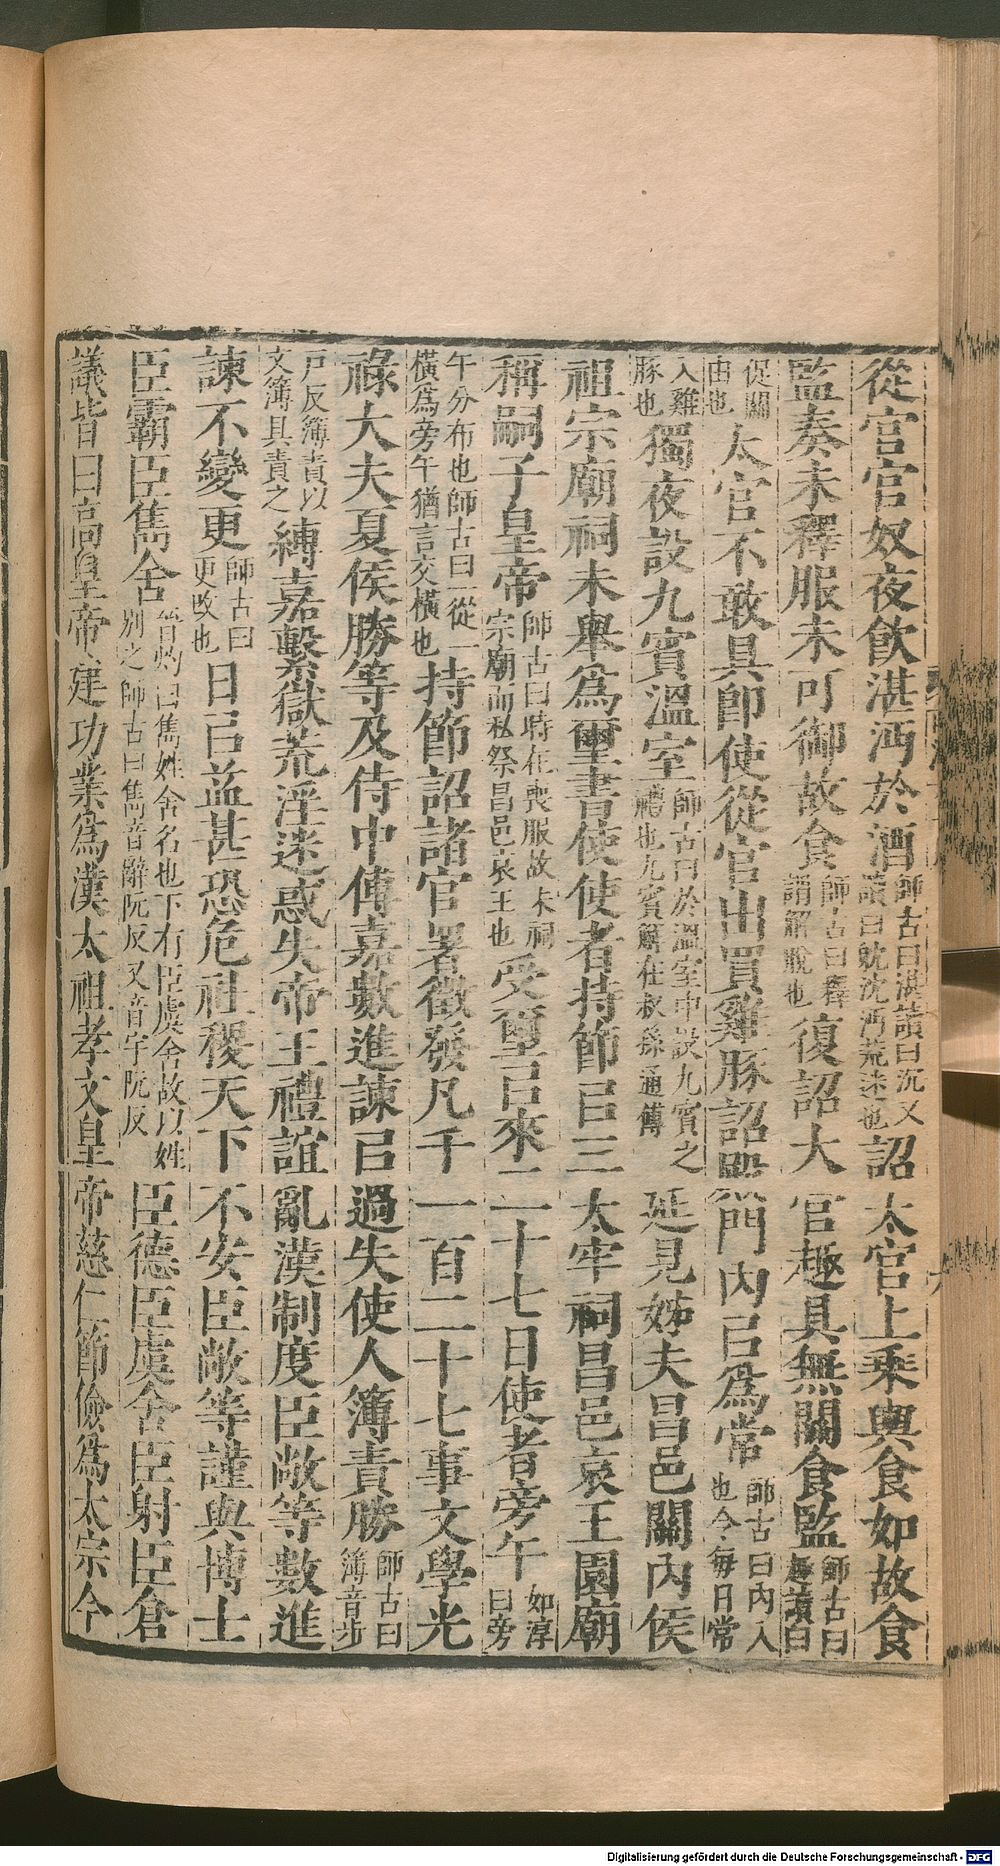 從官官奴夜飲湛沔於酒師古曰湛讀曰沉又讀曰眈沈沔荒迷也詔太官上乘輿食如故食
監奏未釋服未可御故食師古曰釋謂解脫也復詔大官趣具無關食監師古曰趣讀曰
促關由也太官不敢具卽使從官出買雞豚詔殿門內㠯爲常師古曰內入也令每日常
入雞豚也獨夜設九賓溫室師古曰於溫室中設九賓之禮也九賓解在叔孫通傳延見姊夫昌邑關內侯
祖宗廟祠未舉爲璽書使使者持節㠯三太牢祠昌邑哀王園廟
稱嗣子皇帝師古曰時在喪服故未祠宗廟而私祭昌邑哀王也受璽㠯來二十七日使者旁午如淳曰旁
午分布也師古曰一從一橫爲旁午猶言交橫也持節詔諸官署徵發凡千一百二十七事文學光
祿大夫夏侯勝等及侍中傅嘉數進諫㠯過失使人簿責勝師古曰簿音步
戶反簿責以文簿具責之縛嘉繫獄荒淫迷惑失帝王禮誼亂漢制度臣敞等數進
諫不變更師古曰更改也日㠯益甚恐危社稷天下不安臣敞等謹與博士
臣霸臣雋舍晉灼曰雋姓舍名也下有臣虞舍故以姓別之師古曰雋音辭阮反又音字阮反臣德臣虞舍臣射臣倉
議皆曰高皇帝建功業爲漢太祖孝文皇帝慈仁節儉爲太宗今
Digitalisierung gefördert durch die Deutsche Forschungsgemeinschaft - DFG